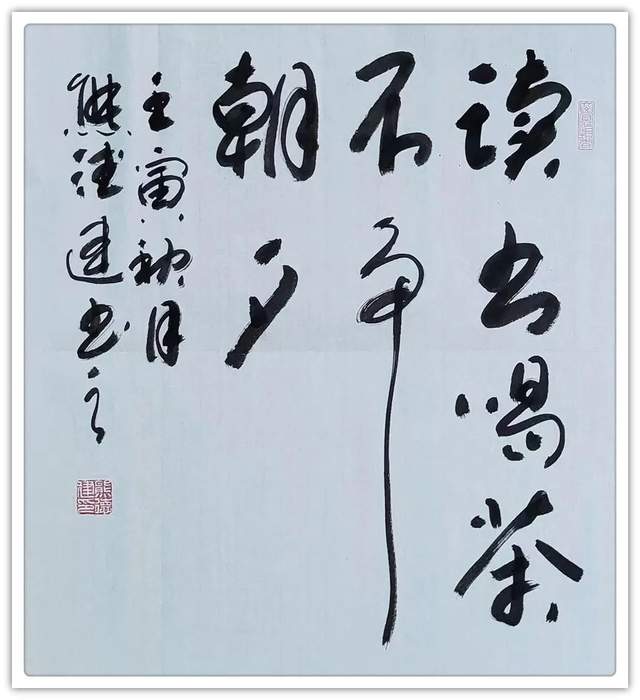 读书喝茶
不争
朝夕
壬寅秋月
熊德建书之
熊德建印